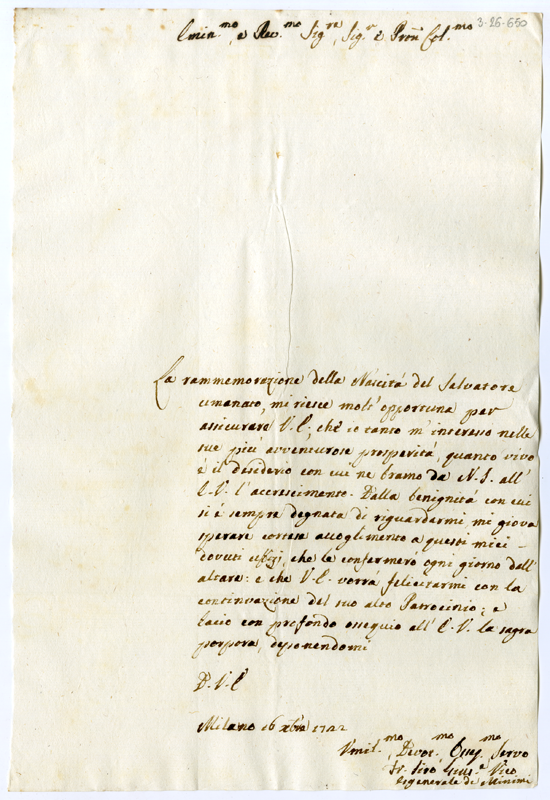 3-26-650
Emin.mo, e Rev.mo Sig.re, Sig.r e Pron Col.mo
La rammemorazione della Nascità del Salvatore
umanato, mi riesce molt' opportuna per
assicurare V. E., che io tanto m' interesso nelle
sue più avventurose prosperità, quanto vivo
è il desiderio con cui ne bramo da N. S. all'
E. V. l' accrescimento. Dalla benignità con cui
si è sempre degnata di riguardarmi mi giova
sperare cortese accoglimento a questi miei
dovuti uffizj, che le confermerò ogni giorno dall'
altare: e che V. E. vorrà felicitarmi con la
continuazione del suo alto Patrocinio; e
bacio con profondo ossequio all' E. V. la sagra
porpora, deponendomi
D. V. E
Milano 16 xbre 1722
Umil.mo, Devot.mo Osseq.mo Servo
Fr. Vico
generale de Minimi